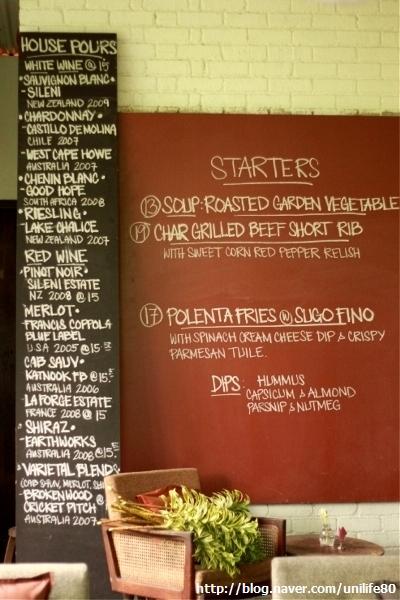 HOUSE POURS
WHITE WINE @ 15
SAUVIGNON BLANC
- SILENI
NEW ZEALAND 2009
CHARDONNAY
- CASTILLO DE MOLINA
CHILE 2007
- WEST CAPE HOWE
AUSTRALIA 2007
CHENIN BLANC
- GOOD HOPE
SOUTH AFRICA 2008
RIESLING
- LAKE CHALICE
NEW ZEALAND 2007
RED WINE
PINOT NOIR
SILENI ESTATE
NZ 2008 @ 15
MERLOT
- FRANCIS COPPOLA
BLUE LABEL
USA 2005 @ 15
CAB SAUV
KATNOOK FB @ 15
AUSTRALIA 2006
- LA FORGE ESTATE
FRANCE 2008 @ 15
SHIRAZ
- EARTHWORKS
AUSTRALIA 2008 @ 15
VARIETAL BLENDS
(CAB SAUV, MERLOT, SHI
- BROKENWOOD @
CRICKET PITCH
AUSTRALIA 2007
STARTERS
13 SOUP: ROASTED GARDEN VEGETABLE
19 CHAR GRILLED BEEF SHORT RIB
WITH SWEET CORN RED PEPPER RELISH
17 POLENTA FRIES @ SUGO FINO
WITH SPINACH CREAM CHEESE DIP & CRISPY
PARMESAN TUILE.
DIPS: HUMMUS
CAPSICUM & ALMOND
PARSNIP & NUTMEG
http://blog.naver.com/unilife80